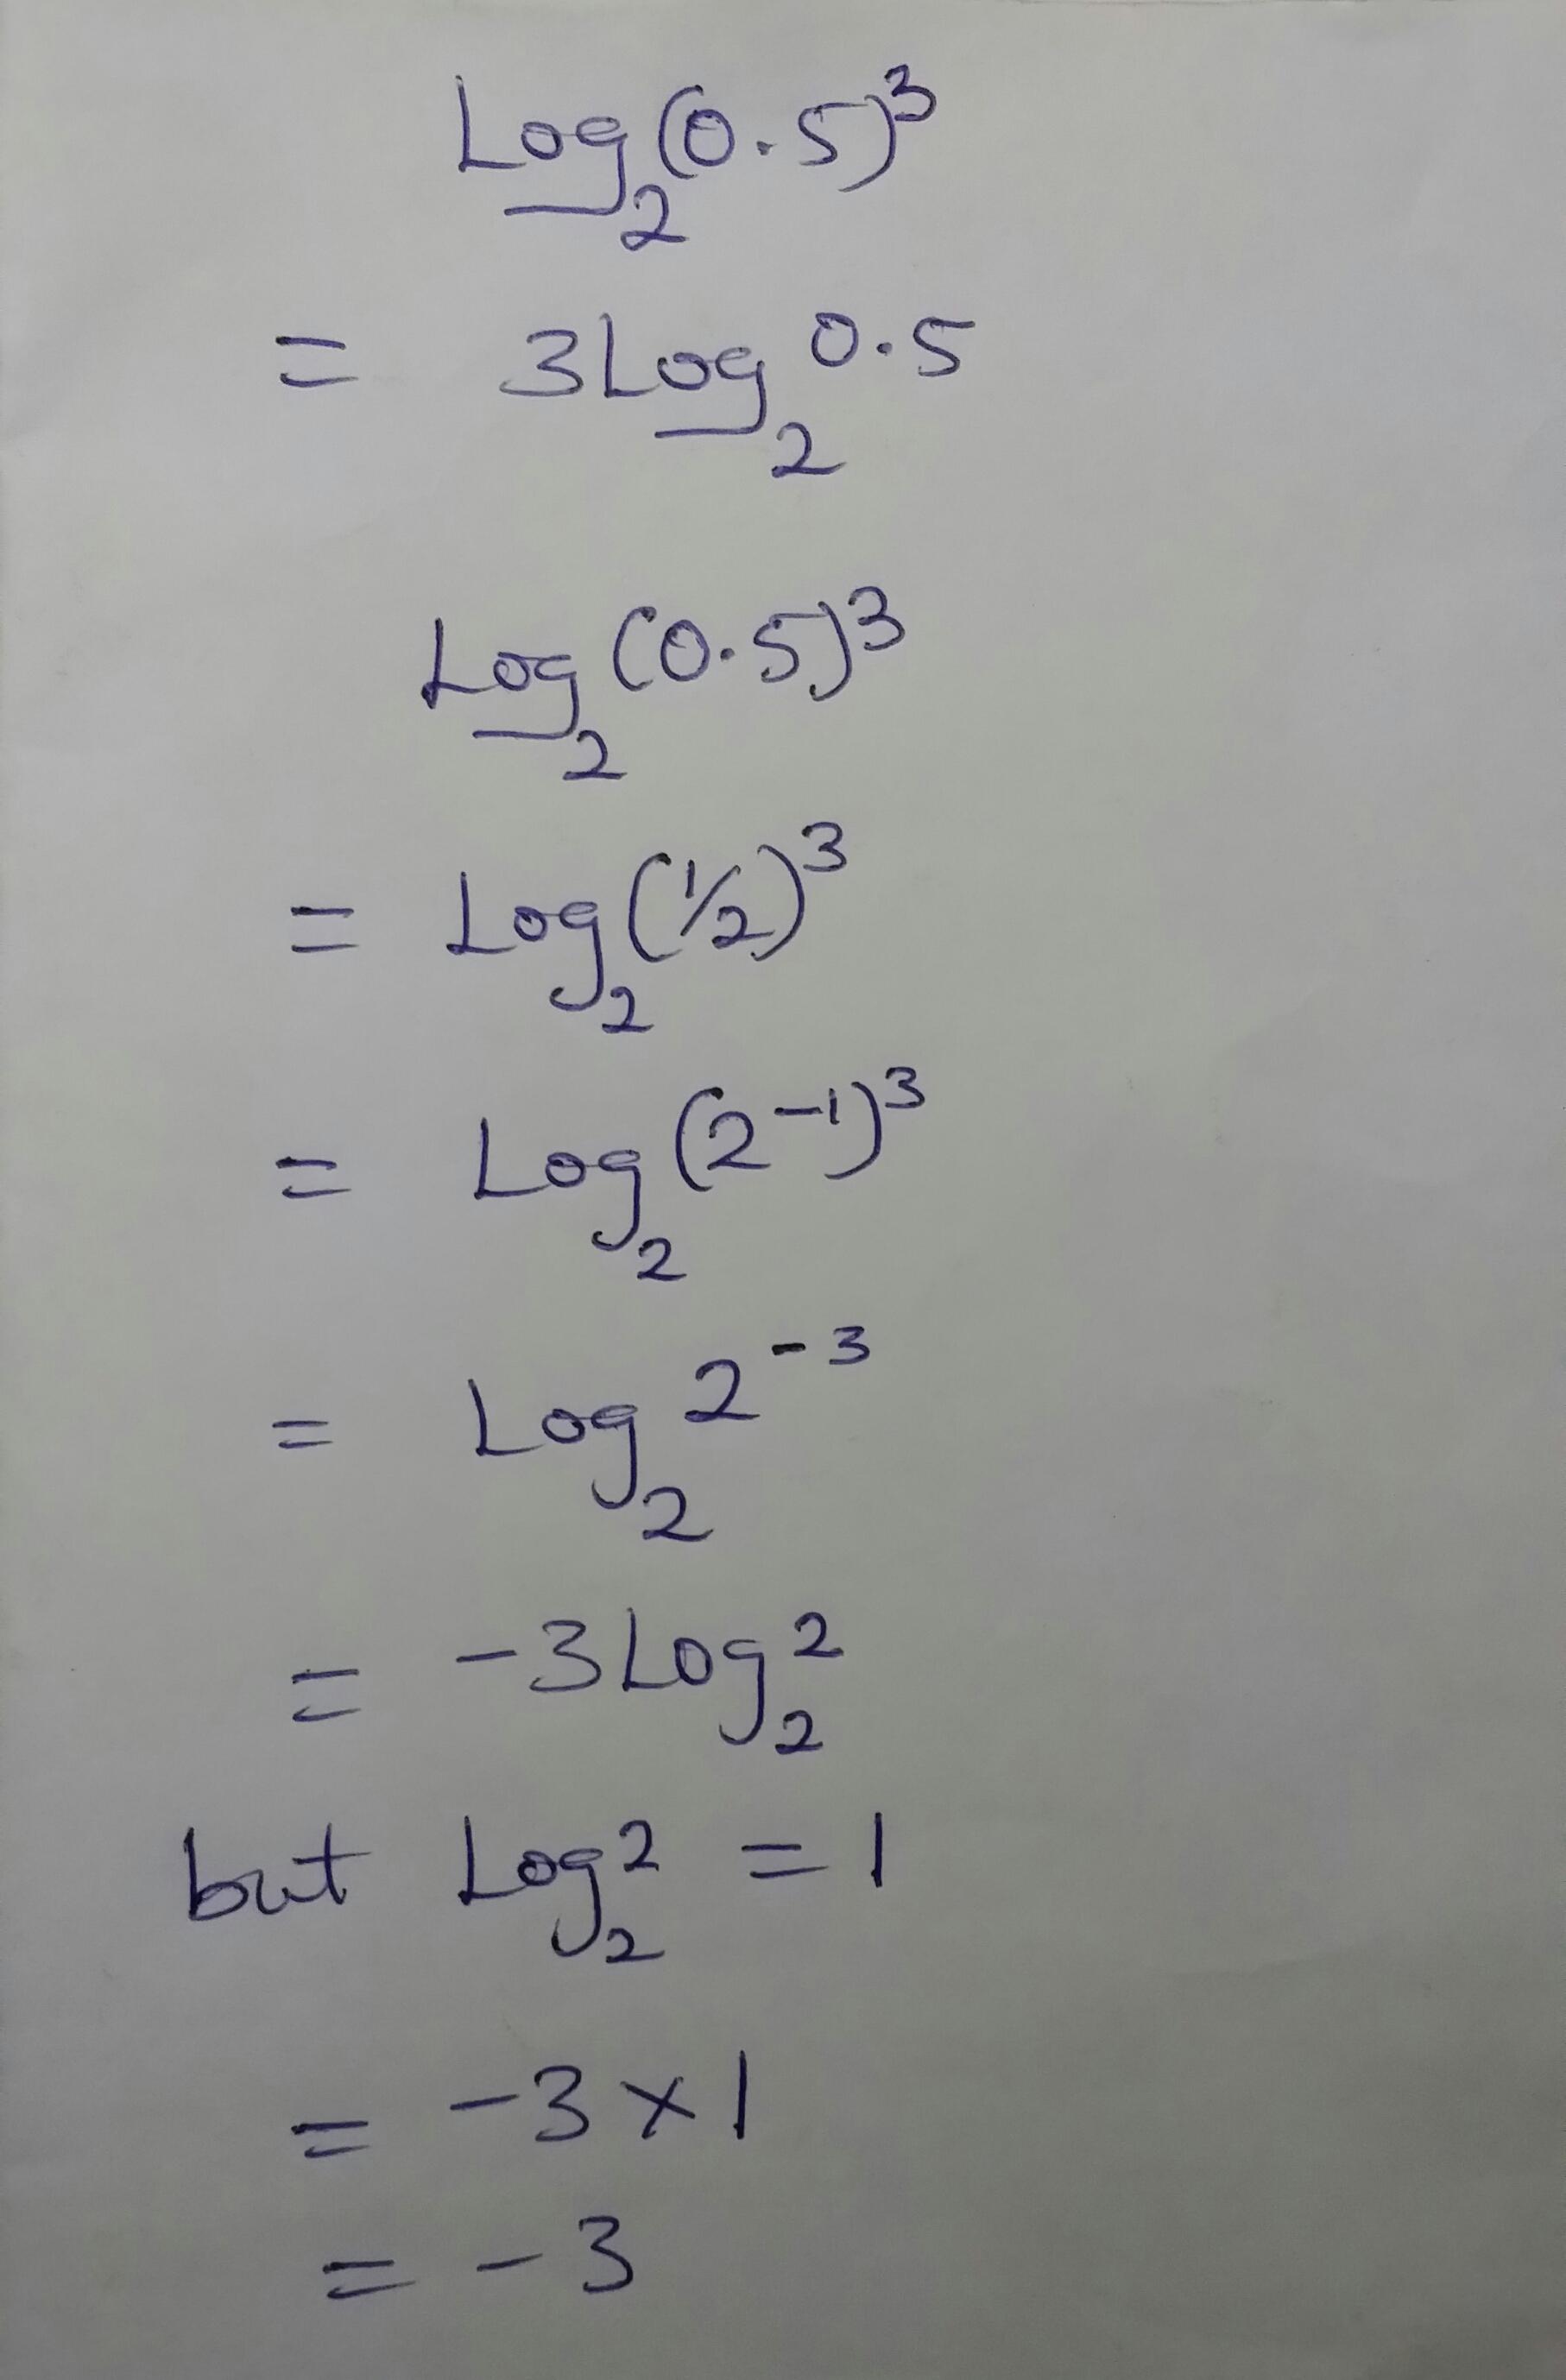 Log₂(0.5)³
= 3Log₂ 0.5
Log₂(0.5)³
= Log₂(½)³
= Log₂(2⁻¹)³
= Log₂ 2⁻³
= -3Log₂ 2
but Log₂ 2 = 1
= -3 × 1
= -3